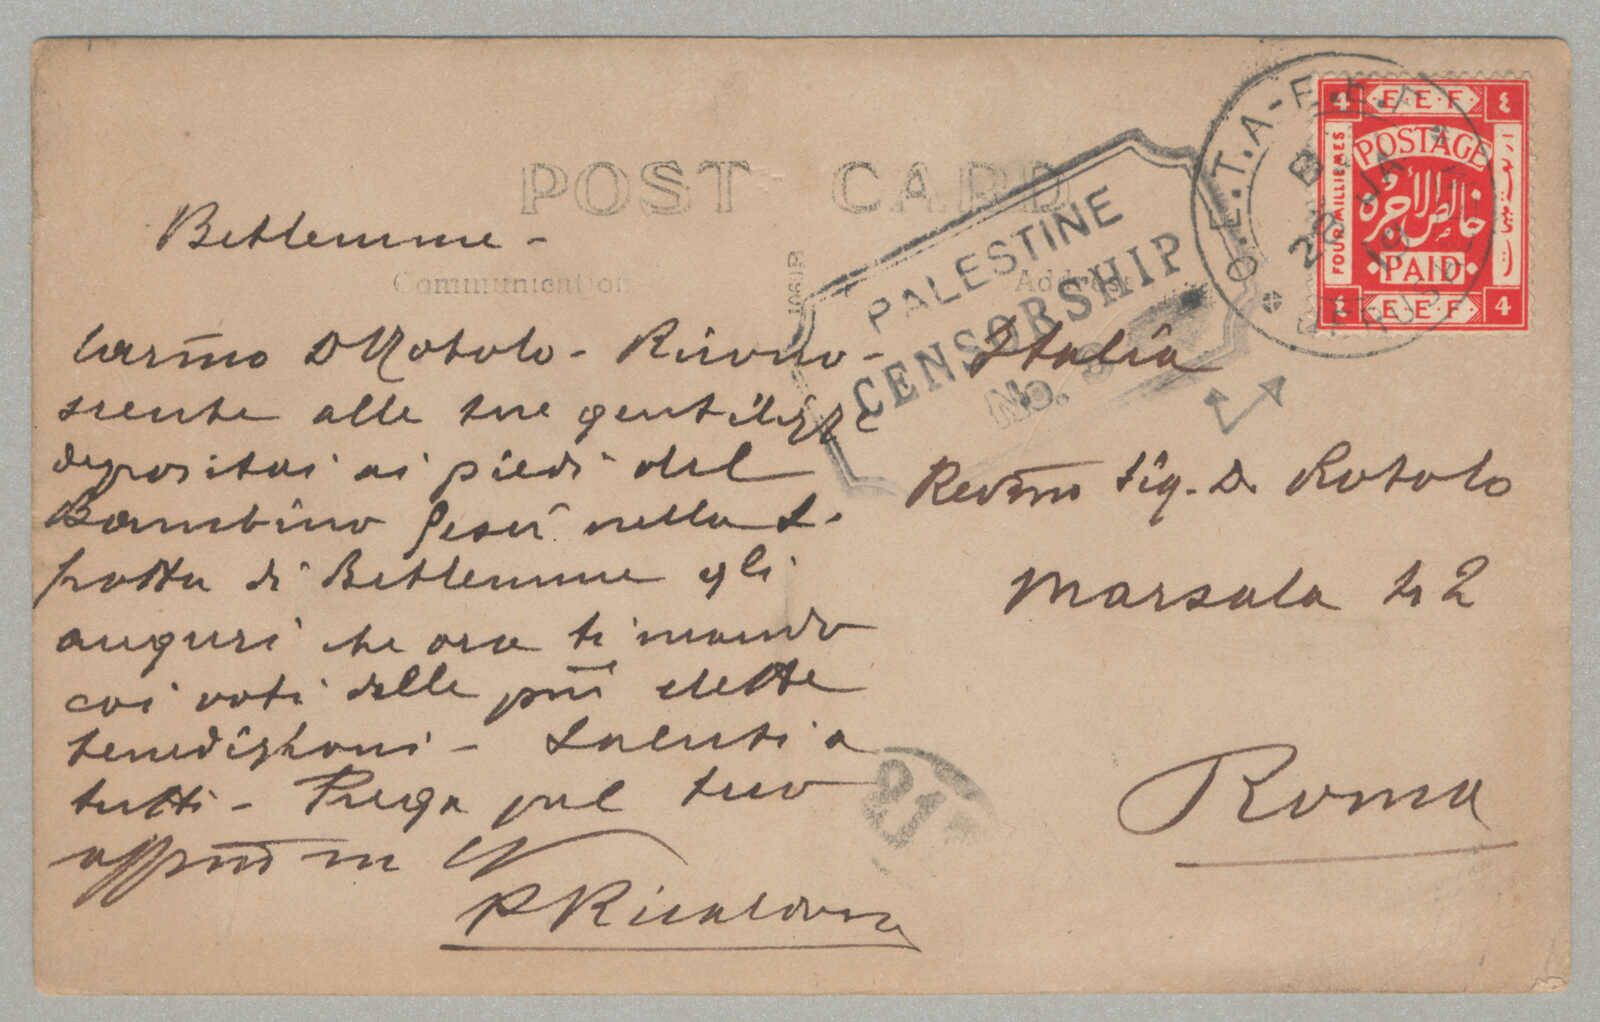 POST CARD
Betlemme -
Communication
Address
Carmo D Rotolo - Ricono-
scente alle tue gentilezze
depositai ai piedi del
Bambino Gesù nella S.
grotta di Betlemme gli
auguri che ora ti mando
coi voti delle più elette
benedizioni - Saluti a
tutti - Prega pel tuo
affmo in
P Ricaldone
Italia
Revmo Sig. D. Rotolo
Marsala 42
Roma
PALESTINE
CENSORSHIP
No. 3
O.E.T.A-E.E.F.
B
28 JA
19
E.E.F
4
٤
POSTAGE
FOUR MILLIEMES
خالص الاجرة
PAID
E.E.F
٤
4